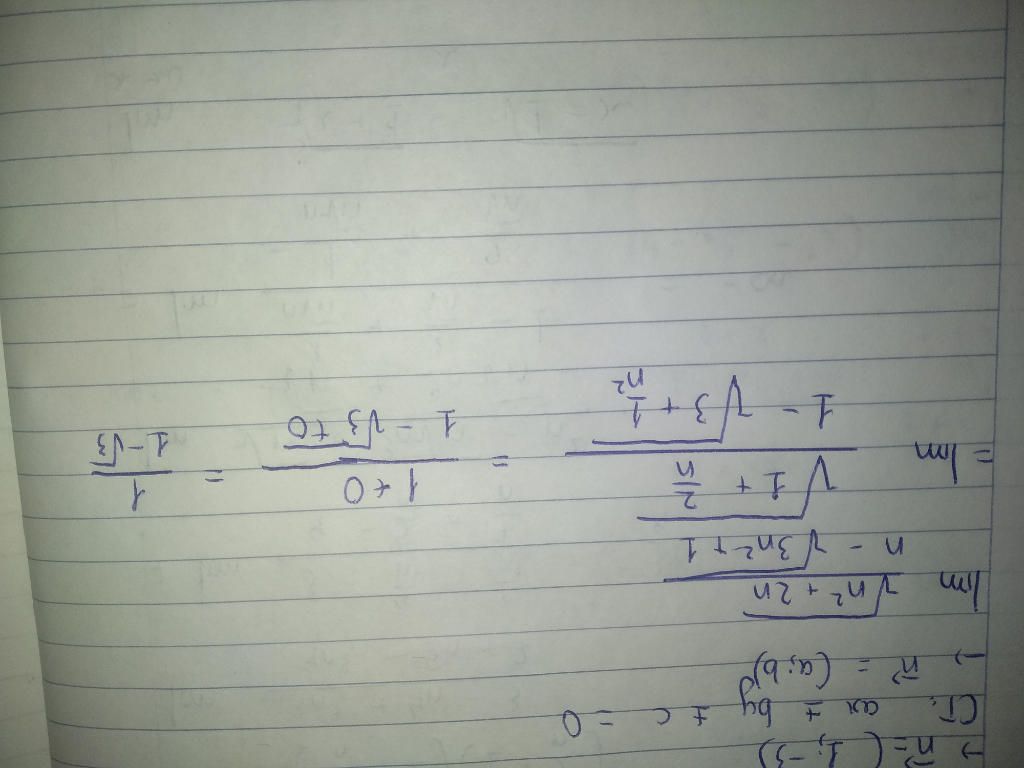 → n⃗ = (1; -3)
CT: ax ± by ± c = 0
→ n⃗ = (a; b)
lim \frac{\sqrt{n² + 2n}}{n - \sqrt{3n² + 1}}
= lim \frac{\sqrt{1 + \frac{2}{n}}}{1 - \sqrt{3 + \frac{1}{n²}}} = \frac{1 + 0}{1 - \sqrt{3 + 0}} = \frac{1}{1 - \sqrt{3}}